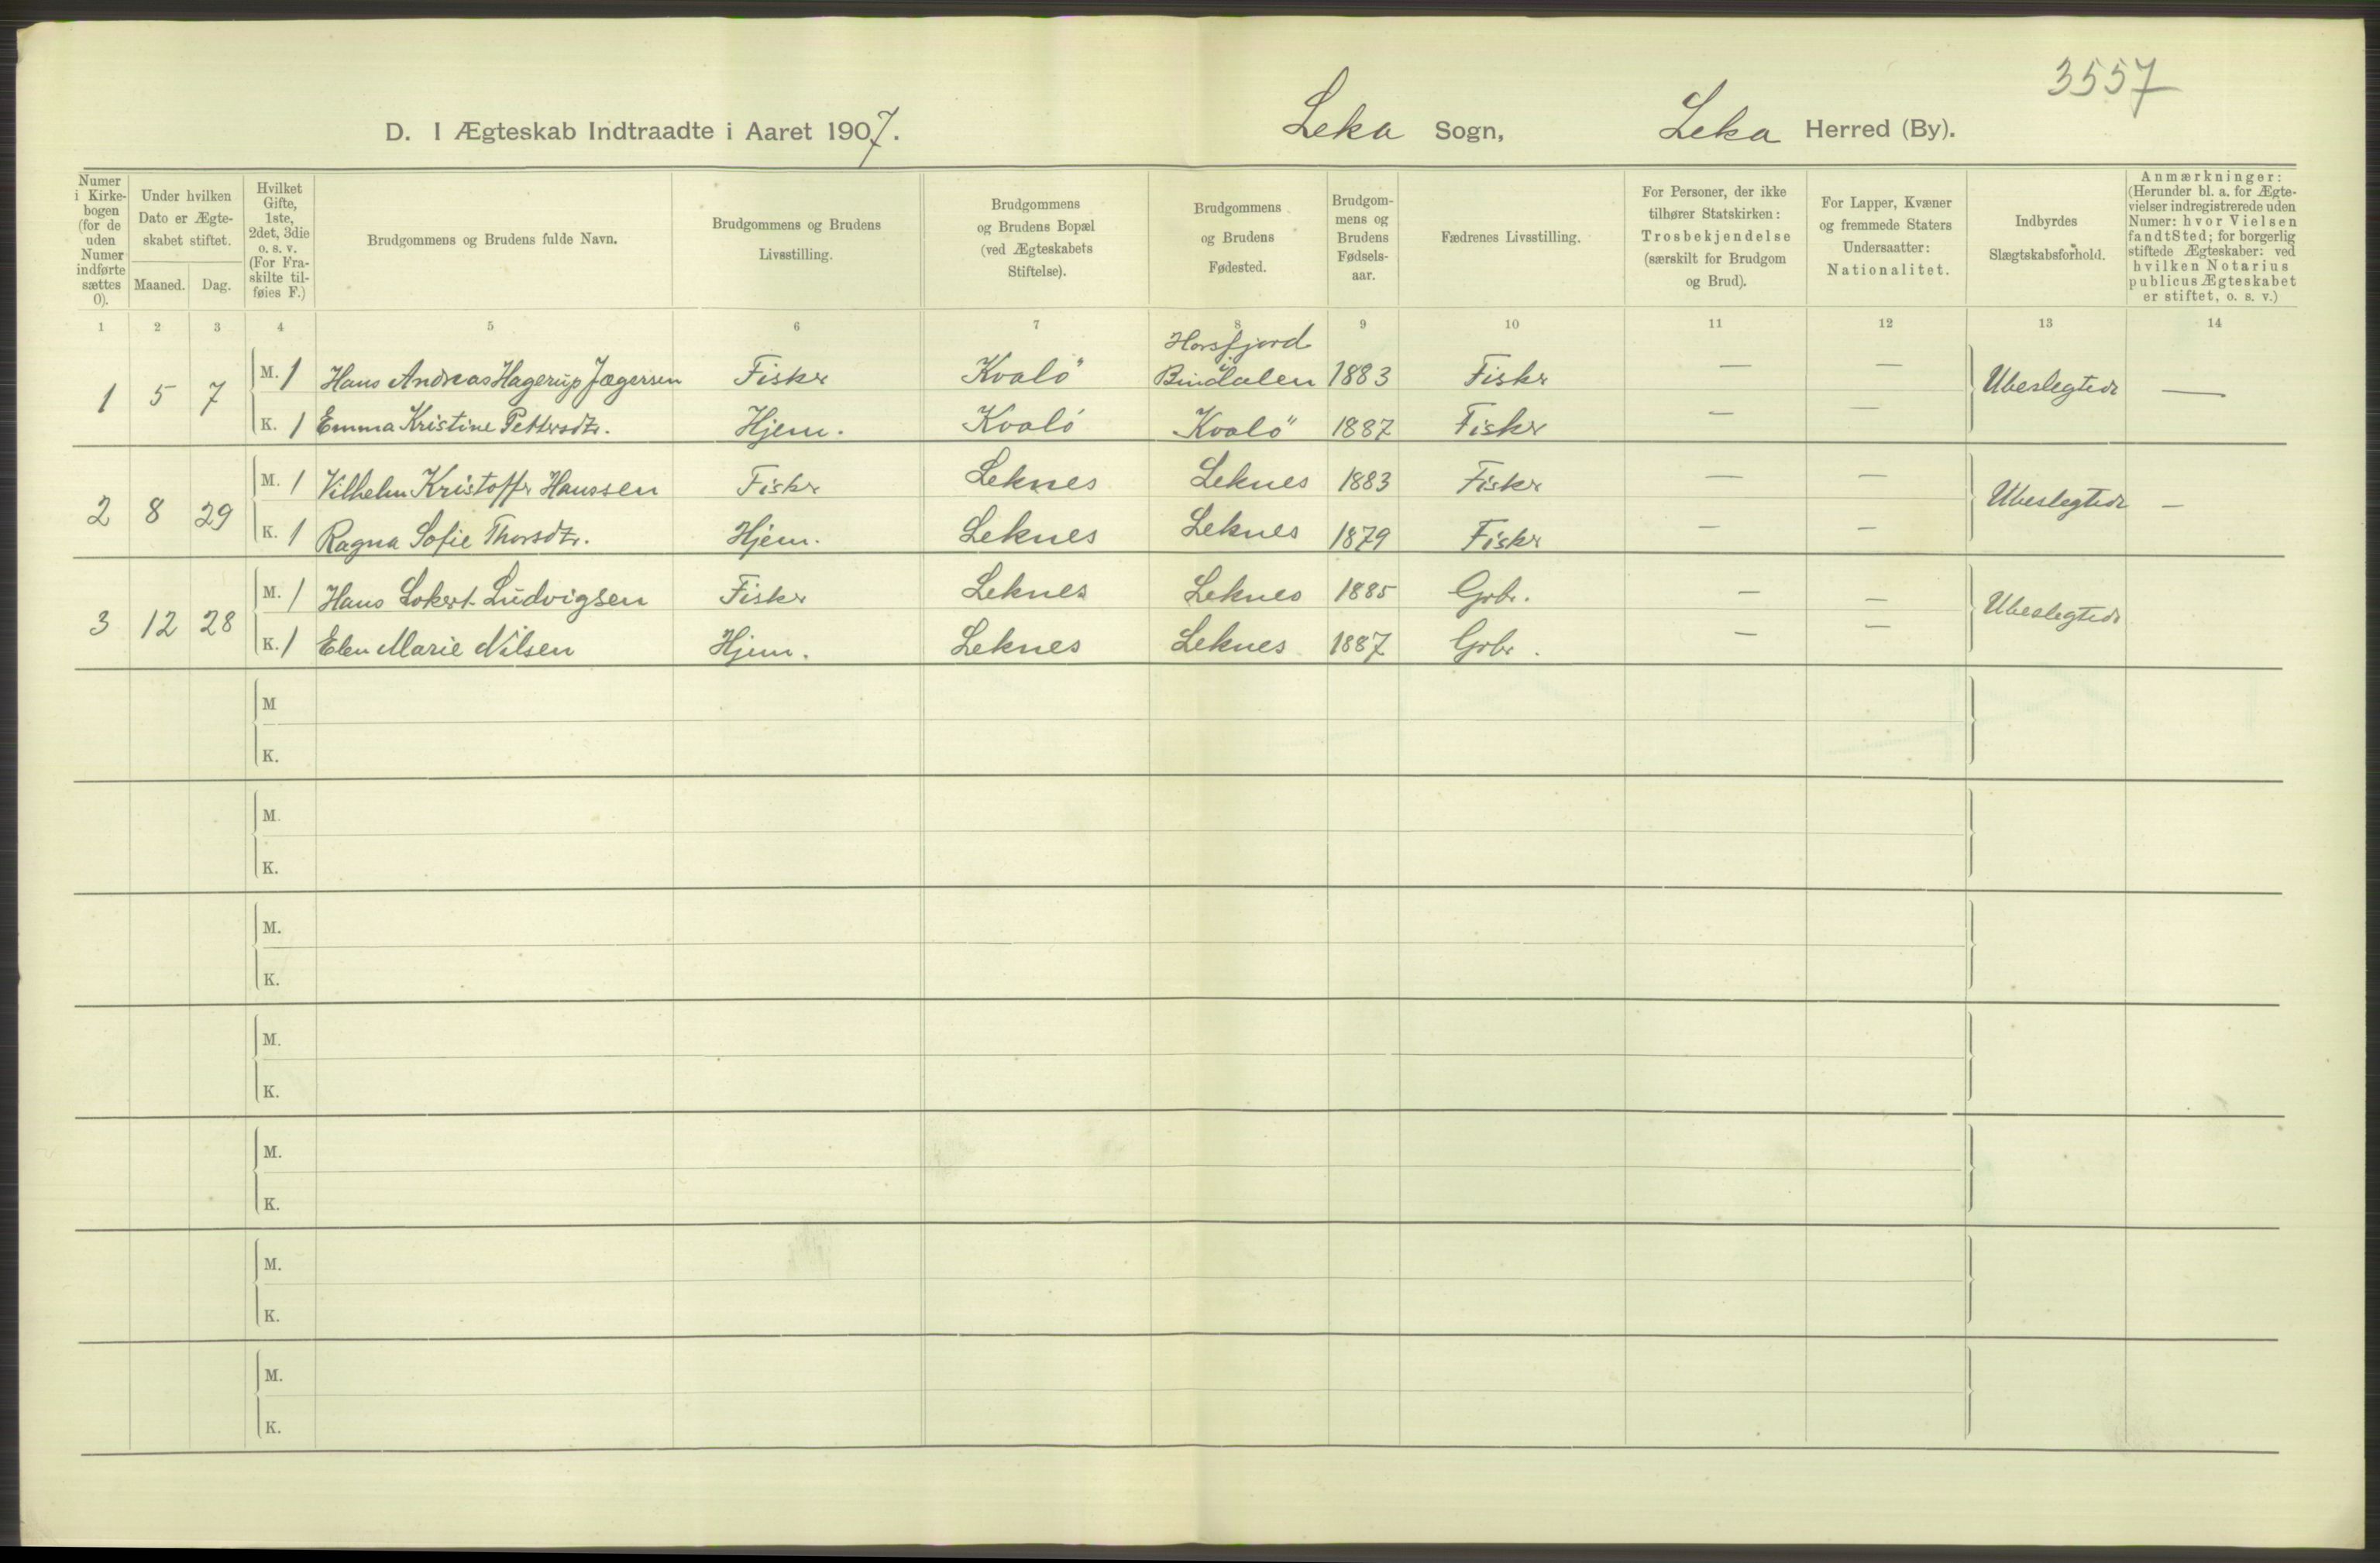 3557
D. I Ægteskab Indtraadte i Aaret 1907. Leka Sogn, Leka Herred (By).
Numer i Kirkebogen (for de uden Numer indførte sættes 0).
Under hvilken Dato er Ægteskabet stiftet.
Maaned. Dag.
Hvilket Gifte, 1ste, 2det, 3die o. s. v. (For Fraskilte tilføies F.)
Brudgommens og Brudens fulde Navn.
Brudgommens og Brudens Livsstilling.
Brudgommens og Brudens Bopæl (ved Ægteskabets Stiftelse).
Brudgommens og Brudens Fødested.
Brudgommens og Brudens Fødselsaar.
Fædrenes Livsstilling.
For Personer, der ikke tilhører Statskirken: Trosbekjendelse (særskilt for Brudgom og Brud).
For Lapper, Kvæner og fremmede Staters Undersaatter: Nationalitet.
Indbyrdes Slægtskabsforhold.
Anmærkninger: (Herunder bl. a. for Ægtevielser indregistrerede uden Numer: hvor Vielsen fandt Sted; for borgerlig stiftede Ægteskaber: ved hvilken Notarius publicus Ægteskabet er stiftet, o. s. v.)
1 2 3 4 5 6 7 8 9 10 11 12 13 14
1 5 7 M. 1 Hans Andreas Hagerup Jægersen Fisker Kvalö Horsfjord i Bindalen 1883 Fisker — — Ubeslegtede —
K. 1 Emma Kristine Pettersdtr. Hjem. Kvalö Kvalö 1887 Fisker — —
2 8 29 M. 1 Vilhelm Kristoffer Hanssen Fisker Leknes Leknes 1883 Fisker — — Ubeslegtede —
K. 1 Ragna Sofie Thorsdtr. Hjem. Leknes Leknes 1879 Fisker — —
3 12 28 M. 1 Hans Lokert Ludvigsen Fisker Leknes Leknes 1885 Grbr. — — Ubeslegtede
K. 1 Elen Marie Nilsen Hjem. Leknes Leknes 1887 Grbr. — —
M
K.
M.
K.
M.
K.
M.
K.
M.
K.
M.
K.
M.
K.